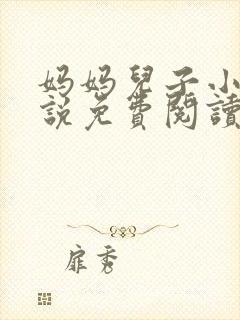 妈妈兒子小
説免費閱讀
扉秀